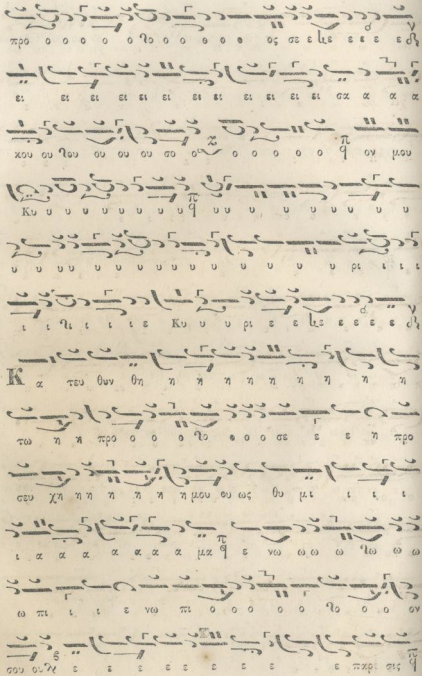 προ ο ο ο ο ο ο ο ο ο ο ος σε ε ε ε ε ε ε
ει ει ει ει ει ει ει ει ει ει ει σα α α α
κου ου ου ου ου ου σο ο ο ο ο ο ο ον μου
Κυ υ υ υ υ υ υ υ υ υ υ υ υ υ υ υ υ υ
υ υ υ υ υ υ υ υ υ υ υ υ υ υ ρι ι ι ι
ι ι ι ι ι ι ε Κυ υ υ ρι ε ε ε ε ε ε ε
Κ α τευ θυν θη η η η η η η η η η η
τω η η προ ο ο ο ο ο ο ο σε ε ε η προ
σευ χη η η η η η η μου ου ως θυ μι ι ι ι
ι α α α α α α α α μα ε νω ω ω ω ω ω ω
ω πι ι ι ε νω πι ο ο ο ο ο ο ο ο ον
σου ου ε ε ε ε ε ε ε ε ε ε